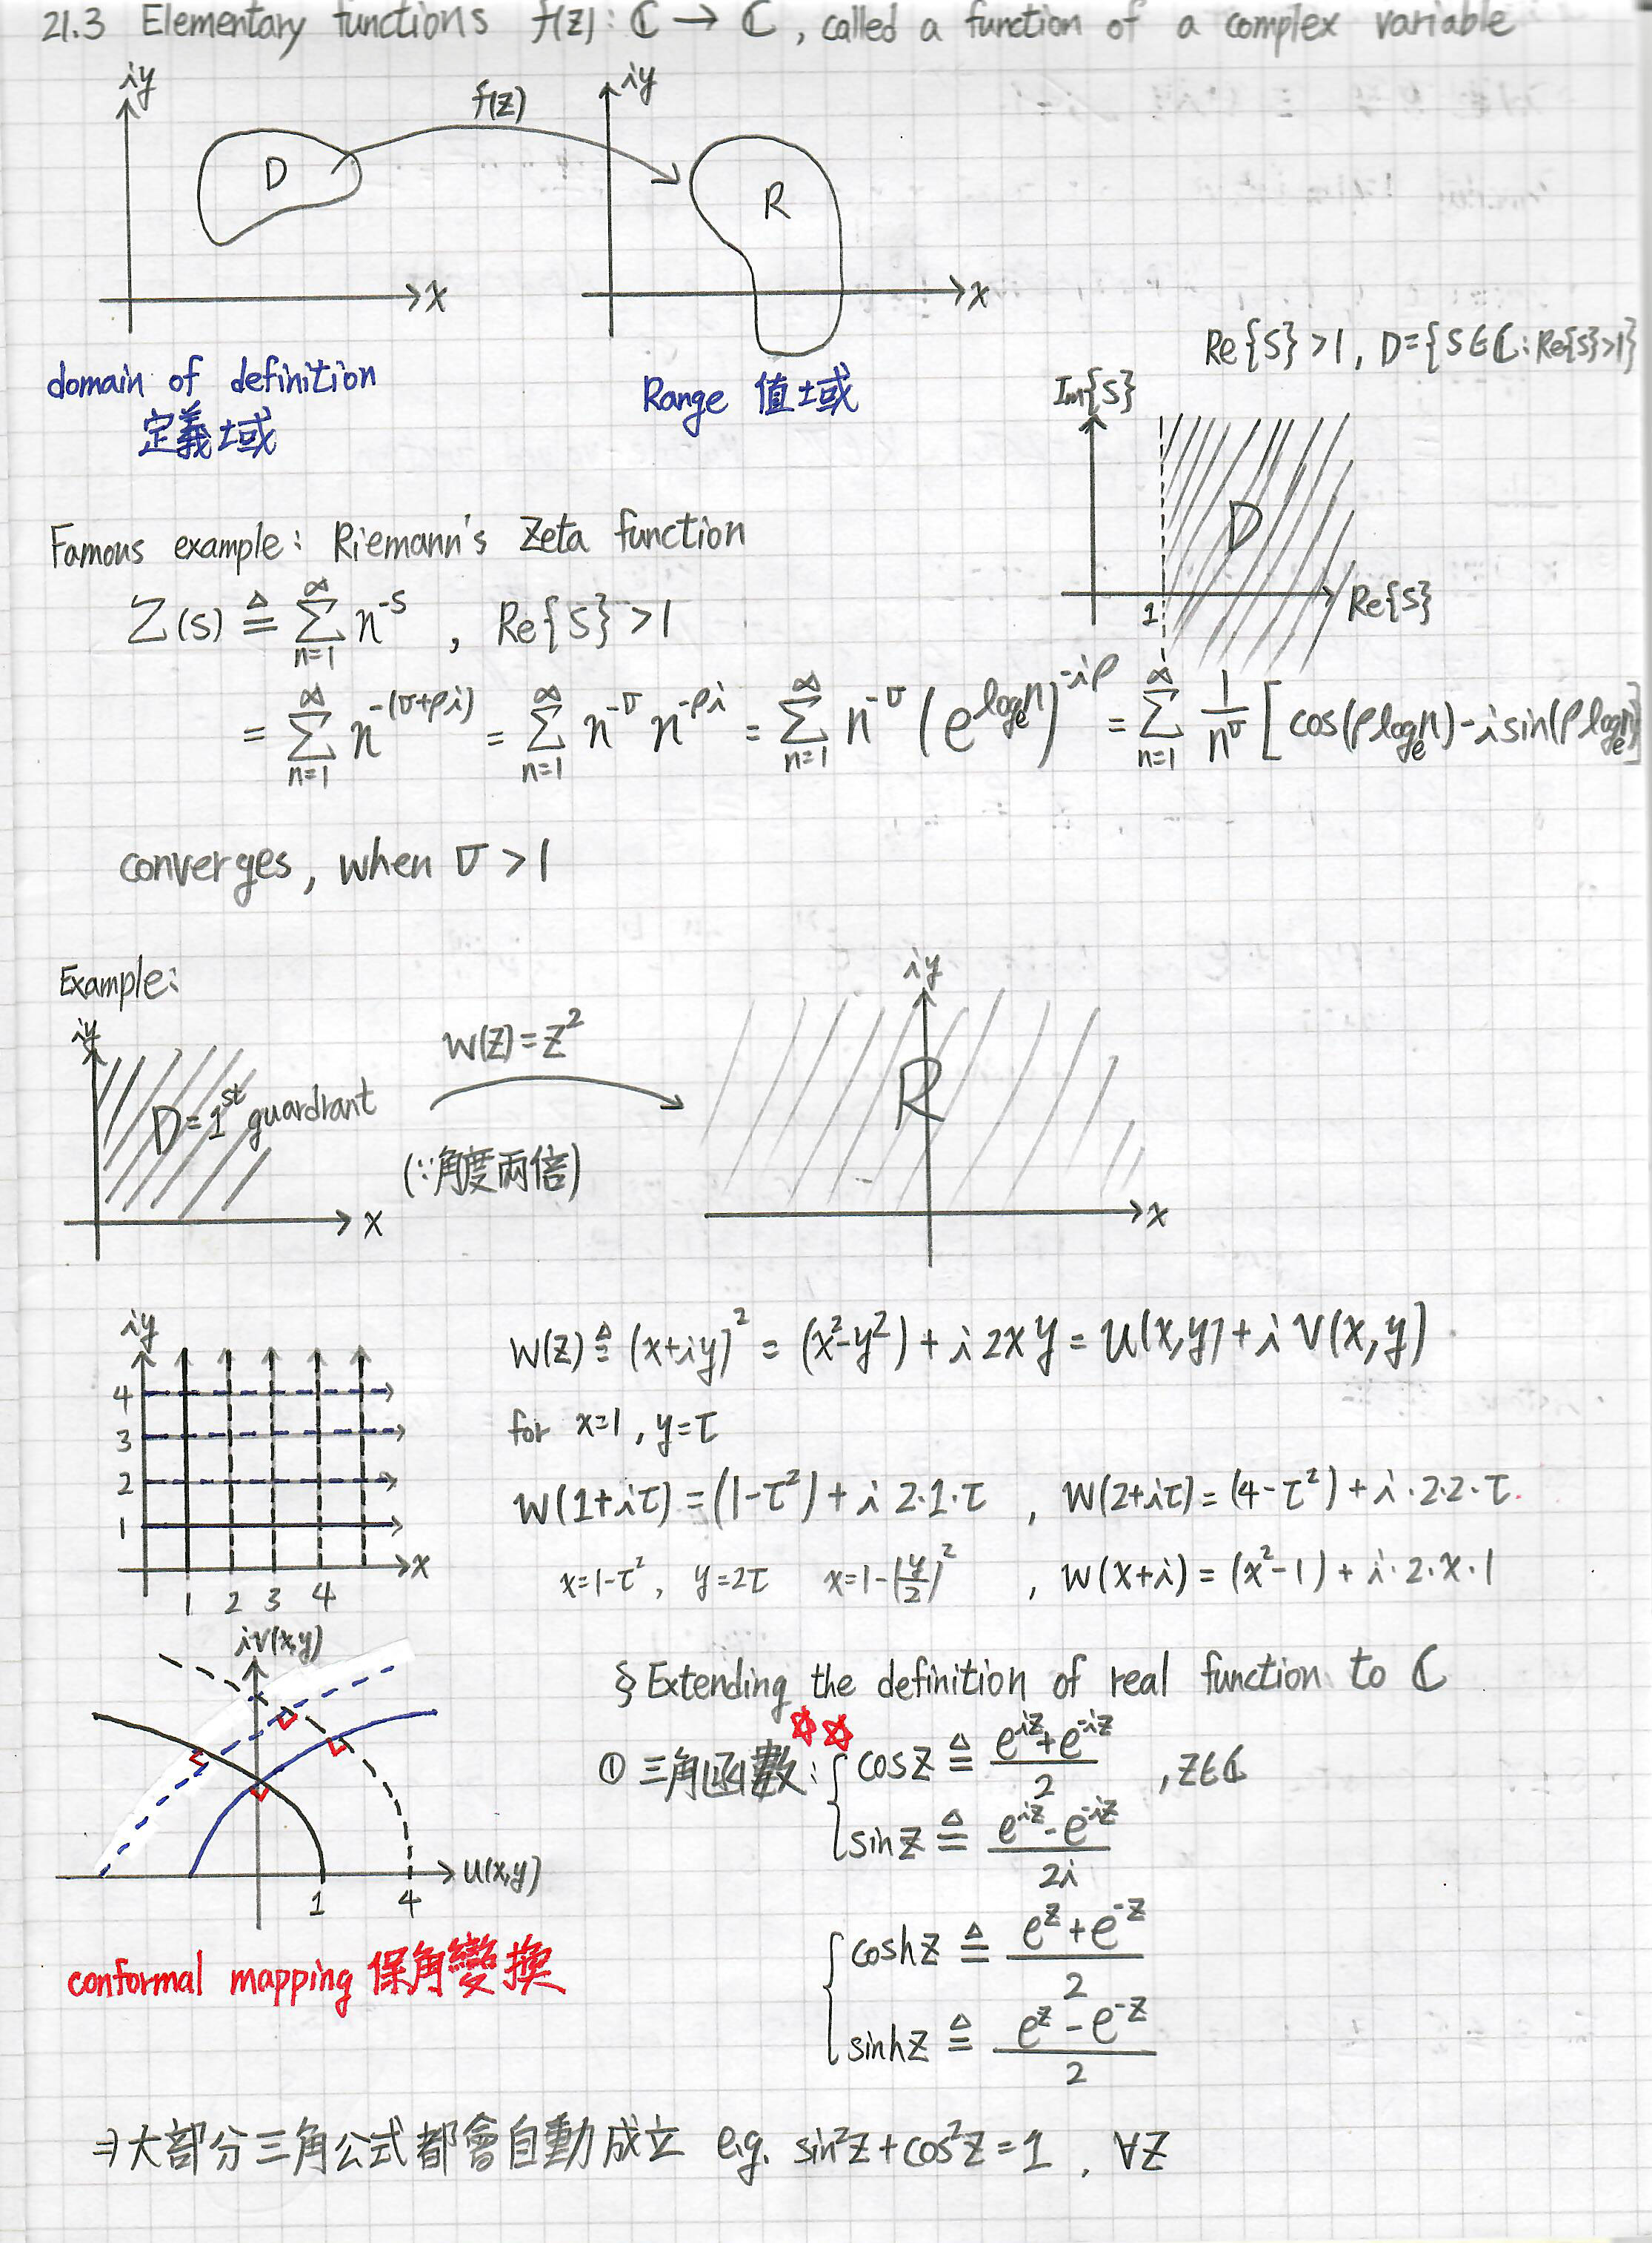 21.3 Elementary functions f(z): ℂ → ℂ, called a function of a complex variable
iy
f(z)
iy
D
R
x
x
domain of definition
定義域
Range 值域
Re{S}>1, D={S∈ℂ: Re{S}>1}
Im{S}
D
1
Re{S}
Famous example: Riemann's Zeta function
Z(s) ≜ ∑_{n=1}^{∞} n^{-s}, Re{S}>1
= ∑_{n=1}^{∞} n^{-(σ+ρi)} = ∑_{n=1}^{∞} n^{-σ} n^{-ρi} = ∑_{n=1}^{∞} n^{-σ} (e^{log_e n})^{-iρ} = ∑_{n=1}^{∞} 1/n^σ [cos(ρ log_e n) - i sin(ρ log_e n)]
converges, when σ>1
Example:
iy
D=1st guardrant
x
W(z)=z²
(∵角度兩倍)
iy
R
x
iy
4
3
2
1
x
1 2 3 4
W(z) ≜ (x+iy)² = (x²-y²) + i2xy = U(x,y) + iV(x,y)
for x=1, y=τ
W(1+iτ) = (1-τ²) + i2·1·τ, W(2+iτ) = (4-τ²) + i·2·2·τ
x=1-τ², y=2τ x=1-(y/2)², W(x+i) = (x²-1) + i·2·x·1
iV(x,y)
U(x,y)
1 4
conformal mapping 保角變換
§ Extending the definition of real function to ℂ
① 三角函數: cosz ≜ (e^{iz}+e^{-iz})/2, z∈ℂ
sinz ≜ (e^{iz}-e^{-iz})/2i
coshz ≜ (e^z+e^{-z})/2
sinhz ≜ (e^z-e^{-z})/2
⇒大部分三角公式都會自動成立 e.g. sin²z+cos²z=1, ∀z